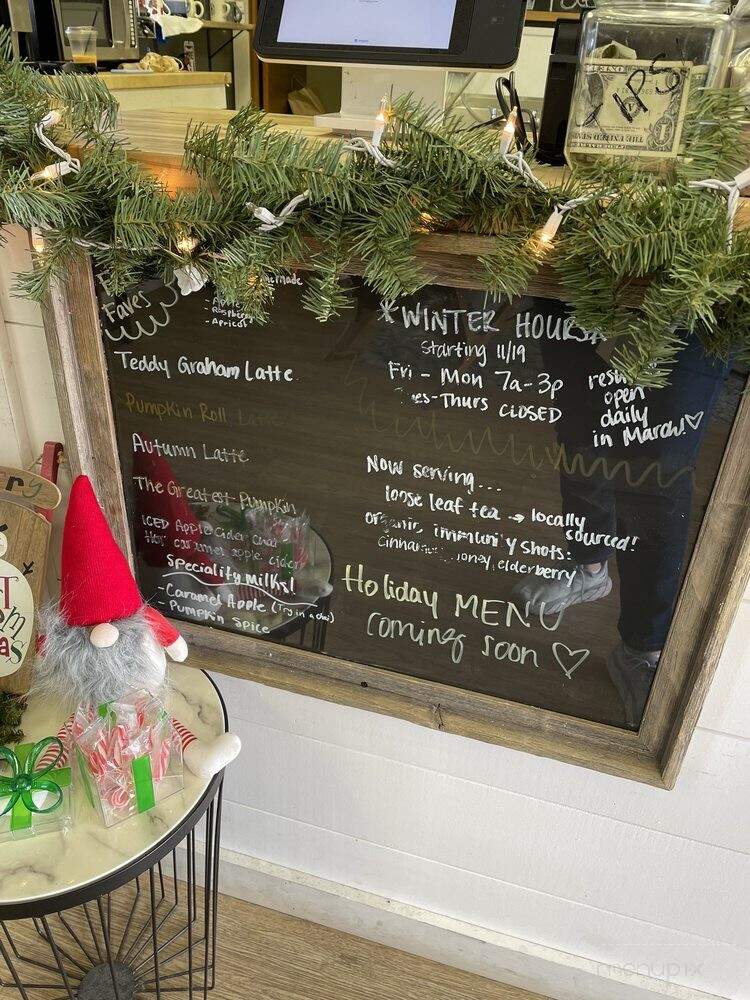 TIPS
Faves
- Apple
- Raspberry
- Apricot
Teddy Graham Latte
Pumpkin Roll Latte
Autumn Latte
The Greatest Pumpkin
ICED Apple Cider Chai
Hot caramel apple cider
Speciality Milks!
- Caramel Apple (Try in a chai)
- Pumpkin Spice
*WINTER HOURS*
starting 11/19
Fri - Mon 7a-3p
es-Thurs CLOSED
open
daily
in March!♡
Now serving...
loose leaf tea → locally
sourced!
organic immunity shots:
cinnamon, honey, elderberry
Holiday MENU
coming soon ♡
menupix